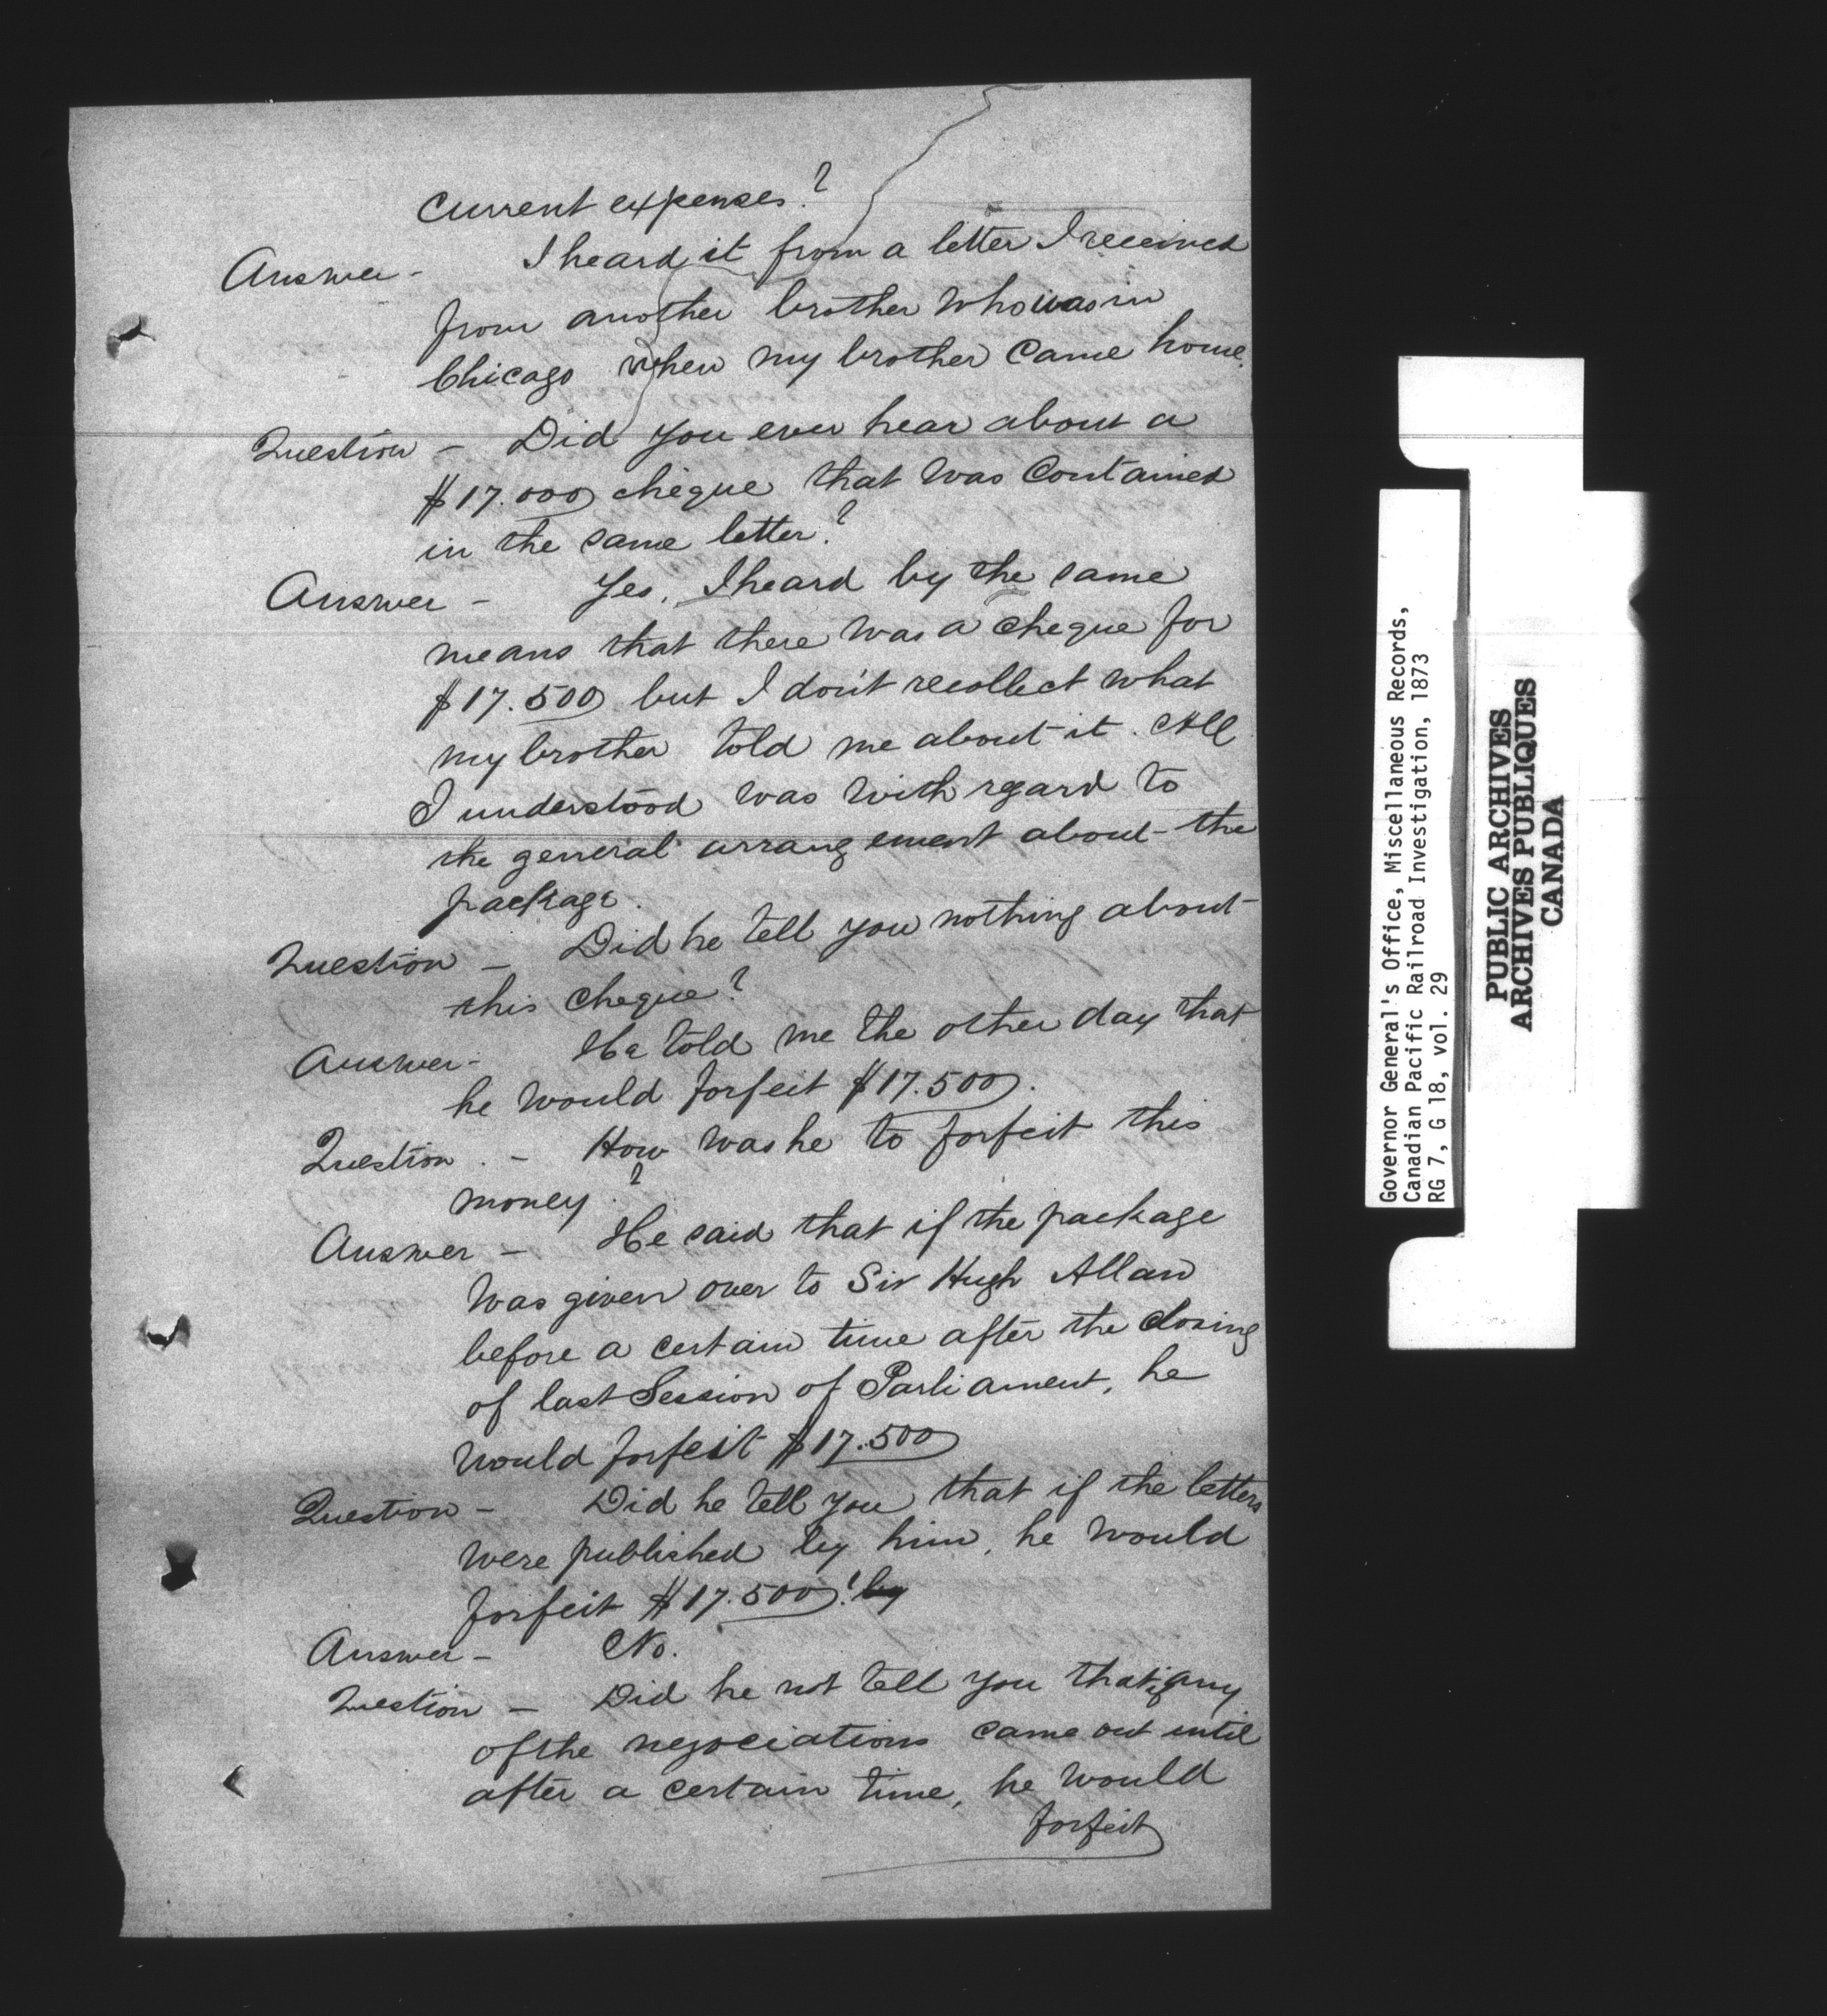 Current expenses?
Answer - I heard it from a letter I received
from another brother who was in
Chicago when my brother came home.
Question - Did you ever hear about a
$17.000 cheque that was Contained
in the same letter?
Answer - Yes, I heard by the same
means that there was a cheque for
$17.500 but I don't recollect what
my brother told me about it. All
I understood was with regard to
the general arrangement about the
package.
Question - Did he tell you nothing about
this cheque?
Answer - He told me the other day that
he would forfeit $17.500.
Question - How was he to forfeit this
money?
Answer - He said that if the package
was given over to Sir Hugh Allan
before a certain time after the closing
of last Session of Parliament, he
would forfeit $17.500
Question - Did he tell you that if the letters
were published by him, he would
forfeit $17.500? by
Answer - No.
Question - Did he not tell you that if any
of the negociations came out until
after a certain time, he would
forfeit
Governor General's Office, Miscellaneous Records,
Canadian Pacific Railroad Investigation, 1873
RG 7, G 18, vol. 29
PUBLIC ARCHIVES
ARCHIVES PUBLIQUES
CANADA